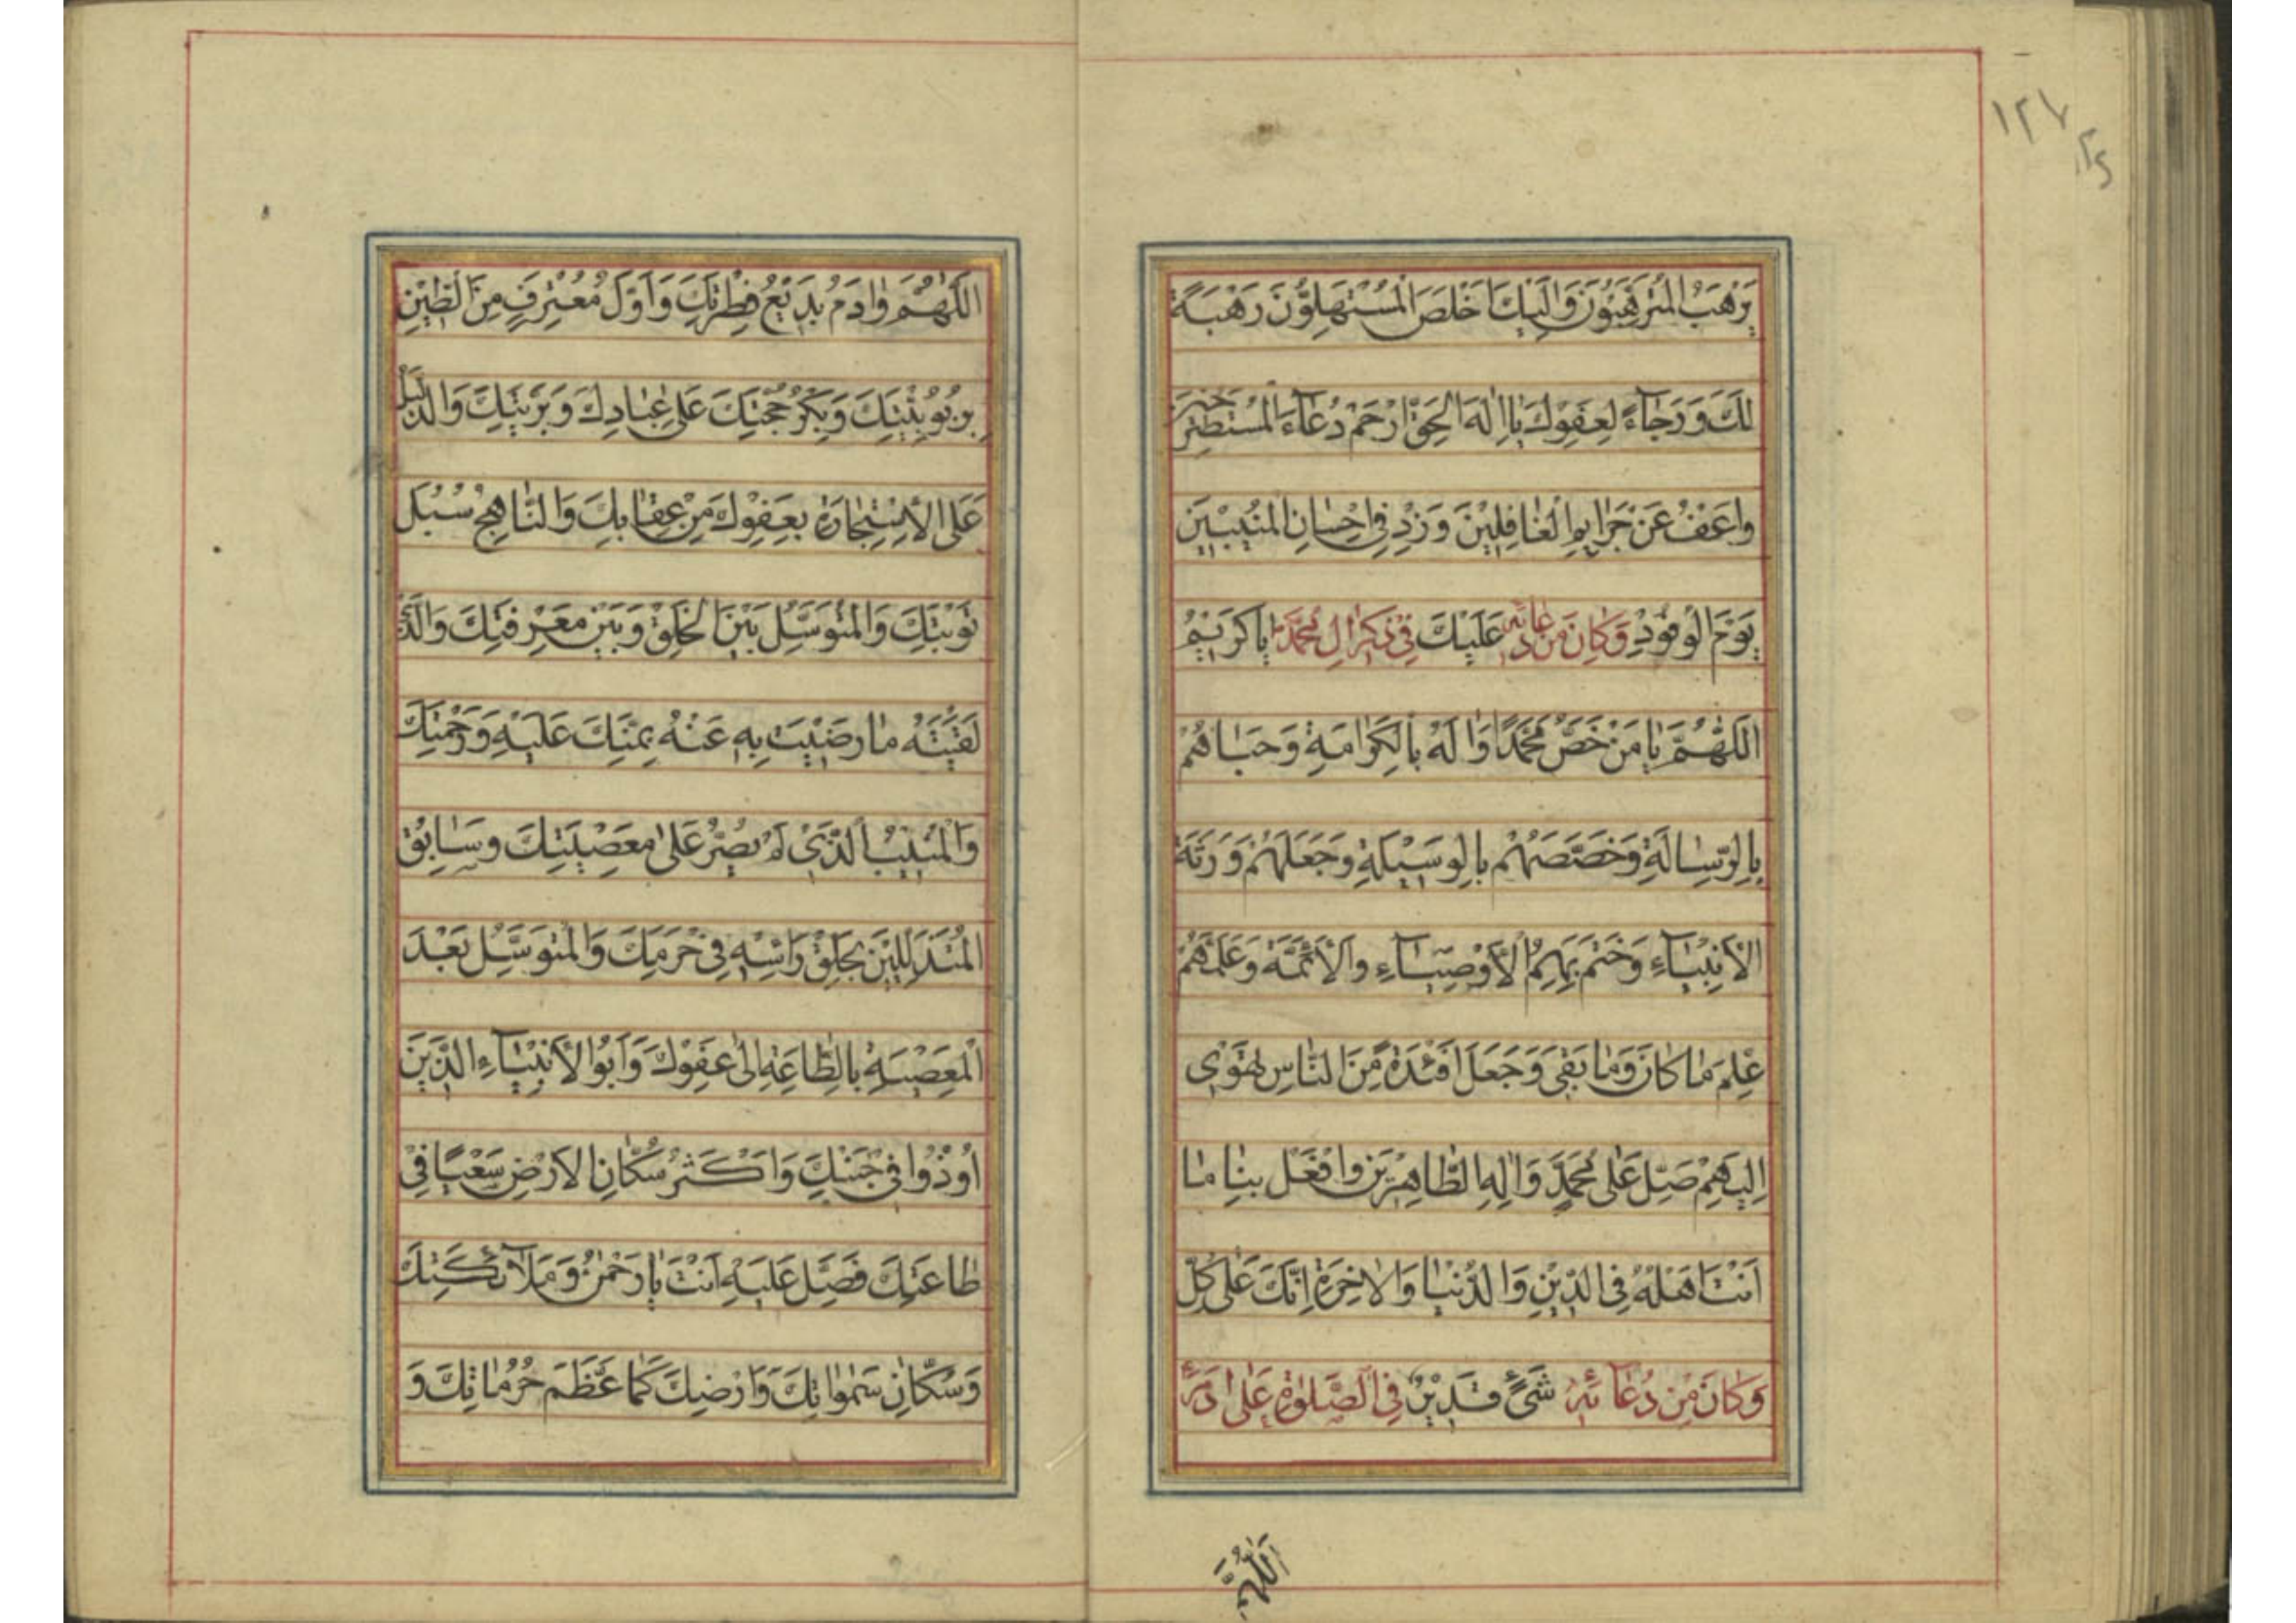 ١٢٧
يَرْهَبُ الْمُتَرَهِّبُونَ وَاِلَيْكَ اَخْلَصَ الْمُسْتَهِلُّونَ رَهْبَةً
لَكَ وَرَجَاءً لِعَفْوِكَ يَا اِلٰهَ الْحَقِّ ارْحَمْ دُعَاءَ الْمُسْتَصْرِخِينَ
وَاعْفُ عَنْ جَرَايِمِ الْغَافِلِينَ وَزِدْ فِي اِحْسَانِ الْمُنِيبِينَ
يَوْمَ الْوُفُودِ وَكَانَ مِنْ دُعَائِهِ عَلَيْكَ فِي ذِكْرِ اٰلِ مُحَمَّدٍ يَا كَرِيمُ
اَللّٰهُمَّ يَا مَنْ خَصَّ مُحَمَّدًا وَاٰلَهُ بِالْكَرَامَةِ وَحَبَاهُمْ
بِالرِّسَالَةِ وَخَصَّصَهُمْ بِالْوَسِيلَةِ وَجَعَلَهُمْ وَرَثَةَ
الْاَنْبِيَاءِ وَخَتَمَ بِهِمُ الْاَوْصِيَاءِ وَالْاَئِمَّةَ وَعَلَّمَهُمْ
عِلْمَ مَا كَانَ وَمَا بَقِيَ وَجَعَلَ اَفْئِدَةً مِنَ النَّاسِ تَهْوِي
اِلَيْهِمْ صَلِّ عَلٰى مُحَمَّدٍ وَاٰلِهِ الطَّاهِرِينَ وَافْعَلْ بِنَا مَا
اَنْتَ اَهْلُهُ فِي الدِّينِ وَالدُّنْيَا وَالْاٰخِرَةِ اِنَّكَ عَلٰى كُلِّ
وَكَانَ مِنْ دُعَائِهِ شَيْءٍ قَدِيرٌ فِي الصَّلٰوةِ عَلٰى اٰدَمَ
اَللّٰهُمَّ
اَللّٰهُمَّ وَاٰدَمُ بَدِيعُ فِطْرَتِكَ وَاَوَّلُ مُعْتَرِفٍ مِنَ الطِّينِ
بِرُبُوبِيَّتِكَ وَبِكْرُ حُجَّتِكَ عَلٰى عِبَادِكَ وَبَرِيَّتِكَ وَالدَّلِيلُ
عَلَى الْاِسْتِجَارَةِ بِعَفْوِكَ مِنْ عِقَابِكَ وَالنَّاهِجُ سُبُلَ
تَوْبَتِكَ وَالْمُتَوَسِّلُ بَيْنَ الْخَلْقِ وَبَيْنَ مَعْرِفَتِكَ وَالَّذِي
لَقَّيْتَهُ مَا رَضِيتَ بِهِ عَنْهُ بِمَنِّكَ عَلَيْهِ وَرَحْمَتِكَ
وَالْمُنِيبُ الَّذِي لَمْ يُصِرَّ عَلٰى مَعْصِيَتِكَ وَسَابِقُ
الْمُتَذَلِّلِينَ بِحَلْقِ رَاْسِهِ فِي حَرَمِكَ وَالْمُتَوَسِّلُ بَعْدَ
الْمَعْصِيَةِ بِالطَّاعَةِ اِلٰى عَفْوِكَ وَاَبُو الْاَنْبِيَاءِ الَّذِينَ
اُوذُوا فِي جَنْبِكَ وَاَكْثَرُ سُكَّانِ الْاَرْضِ سَعْيًا فِي
طَاعَتِكَ فَصَلِّ عَلَيْهِ اَنْتَ يَا رَحْمٰنُ وَمَلَآئِكَتُكَ
وَسُكَّانُ سَمٰوَاتِكَ وَاَرْضِكَ كَمَا عَظَّمَ حُرُمَاتِكَ وَ